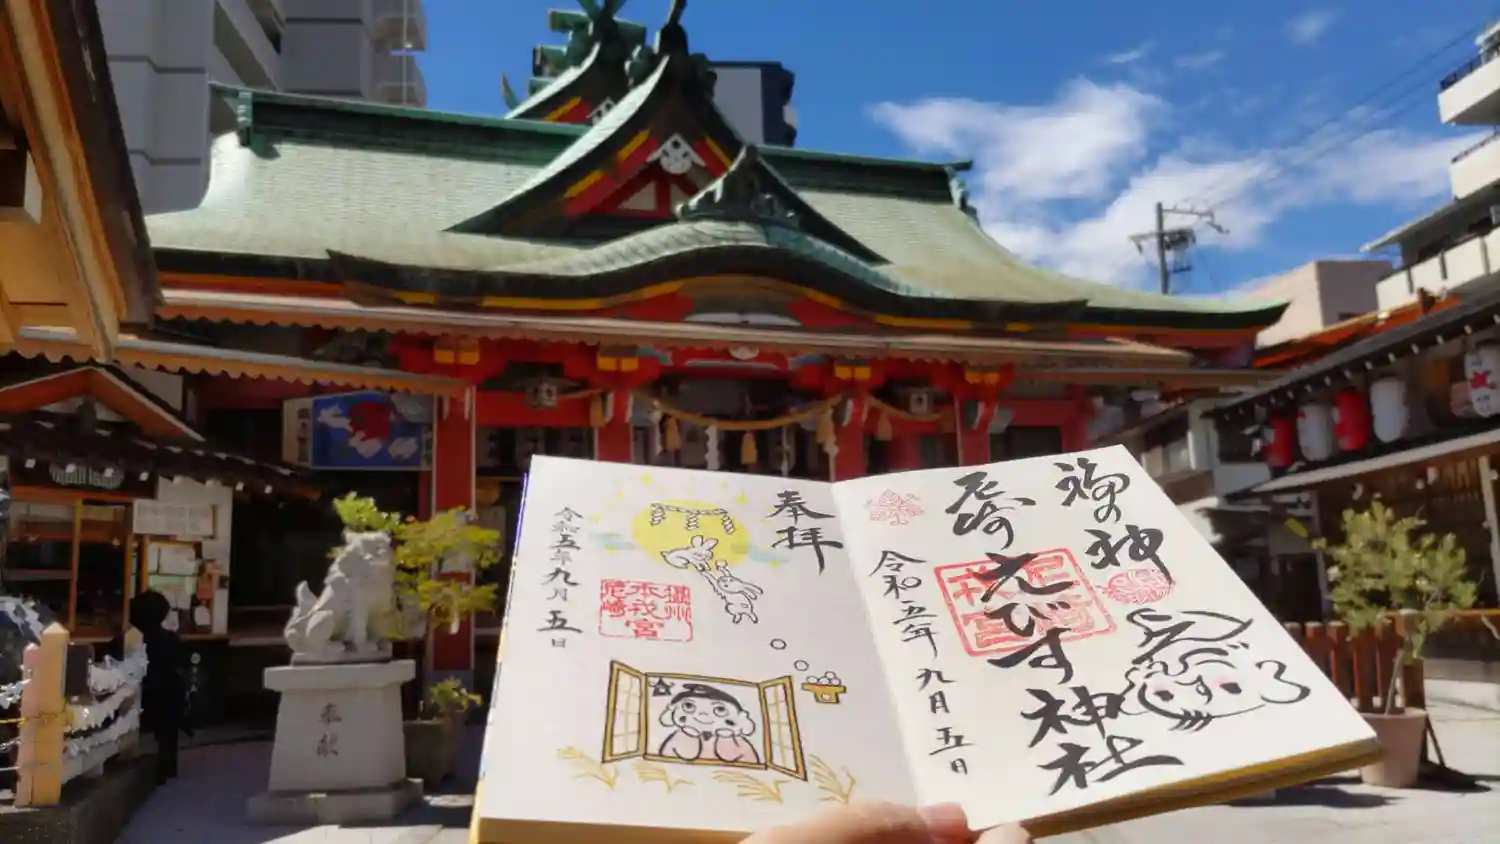 奉拝
摂州
不戎宮
尼崎
令和五年九月五日
福の神
尼崎えびす神社
令和五年九月五日
奉献